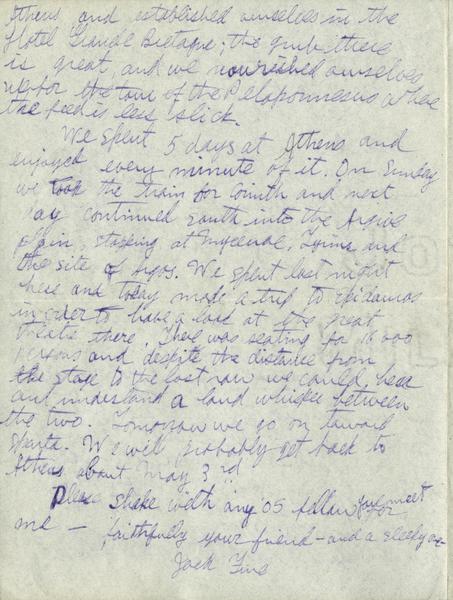 Athens and established ourselves in the
Hotel Grande Bretagne; the grub there
is great, and we nourished ourselves
up for the tour of the Peloponnesus where
the feed is less slick.
We spent 5 days at Athens and
enjoyed every minute of it. On Sunday
we took the train for Corinth and next
day continued south into the Argive
plain, stopping at Mycenae, Tyrins and
the site of Argos. We spent last night
here and today made a trip to Epidauros
in order to have a look at the great
theatre there. There was seating for 16000
persons and despite the distance from
the stage to the last row we could hear
and understand a loud whisper between
the two. Tomorrow we go on toward
Sparta. We will probably get back to
Athens about May 3rd.
Please shake with any '05 fellow you meet
for me — faithfully your friend — and a sleepy one
Jack